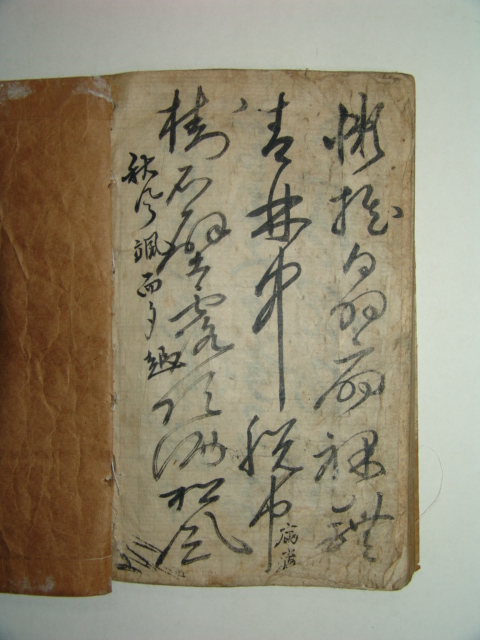 懶搖白羽扇裸體
青林中脫巾
掛石壁露頂灑松風
秋風颯而夕趣